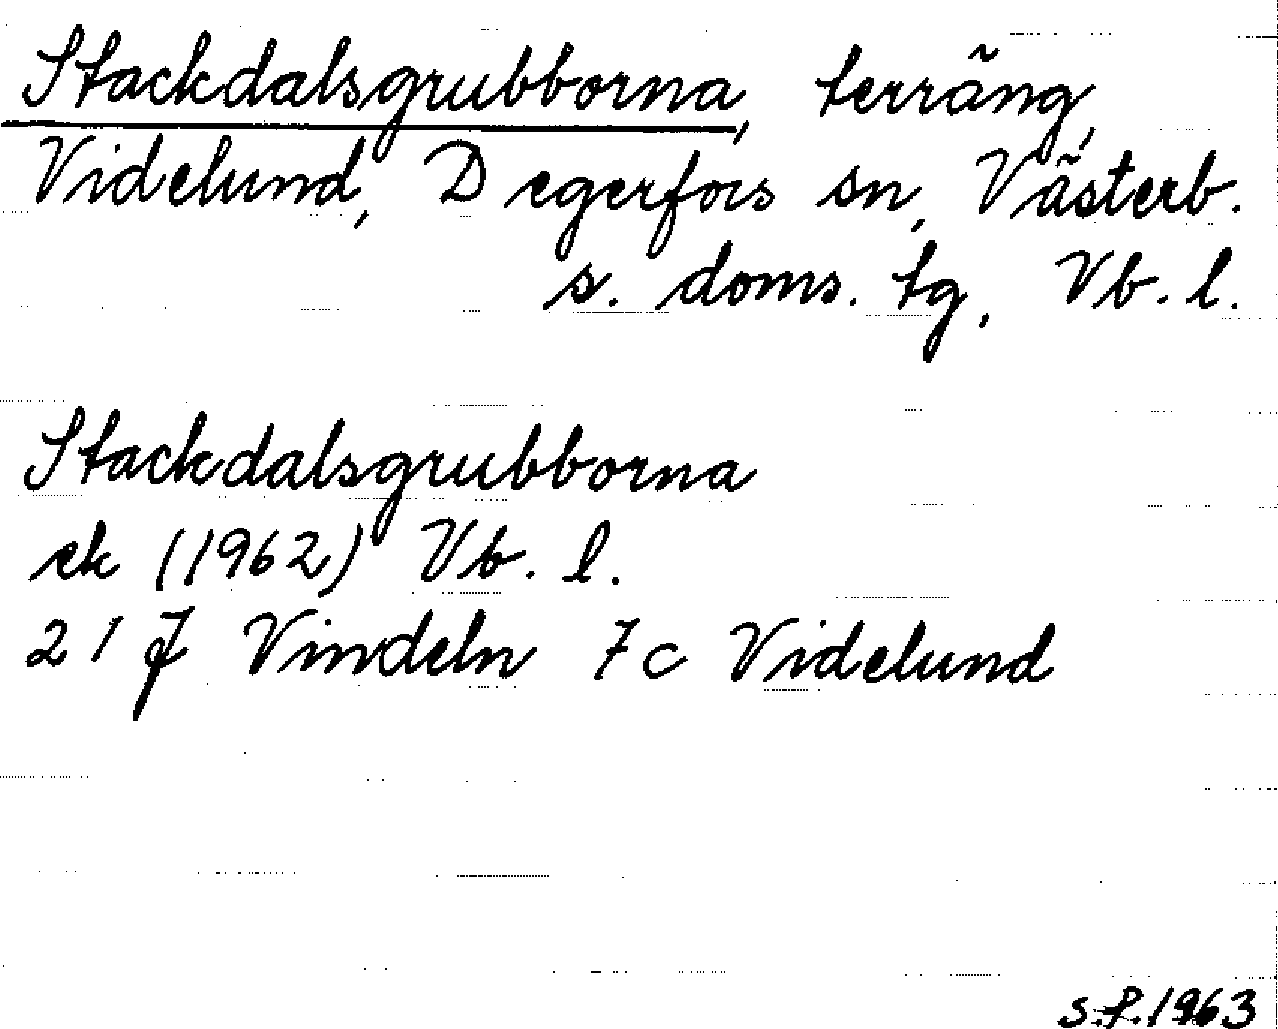 Stackdalsgrubborna, terräng,
Videlund, Degerfors sn, Västerb.
s. doms. tg, Vb. l.
Stackdalsgrubborna
ek (1962) Vb. l.
21 J Vindeln 7c Videlund
S.P.1963